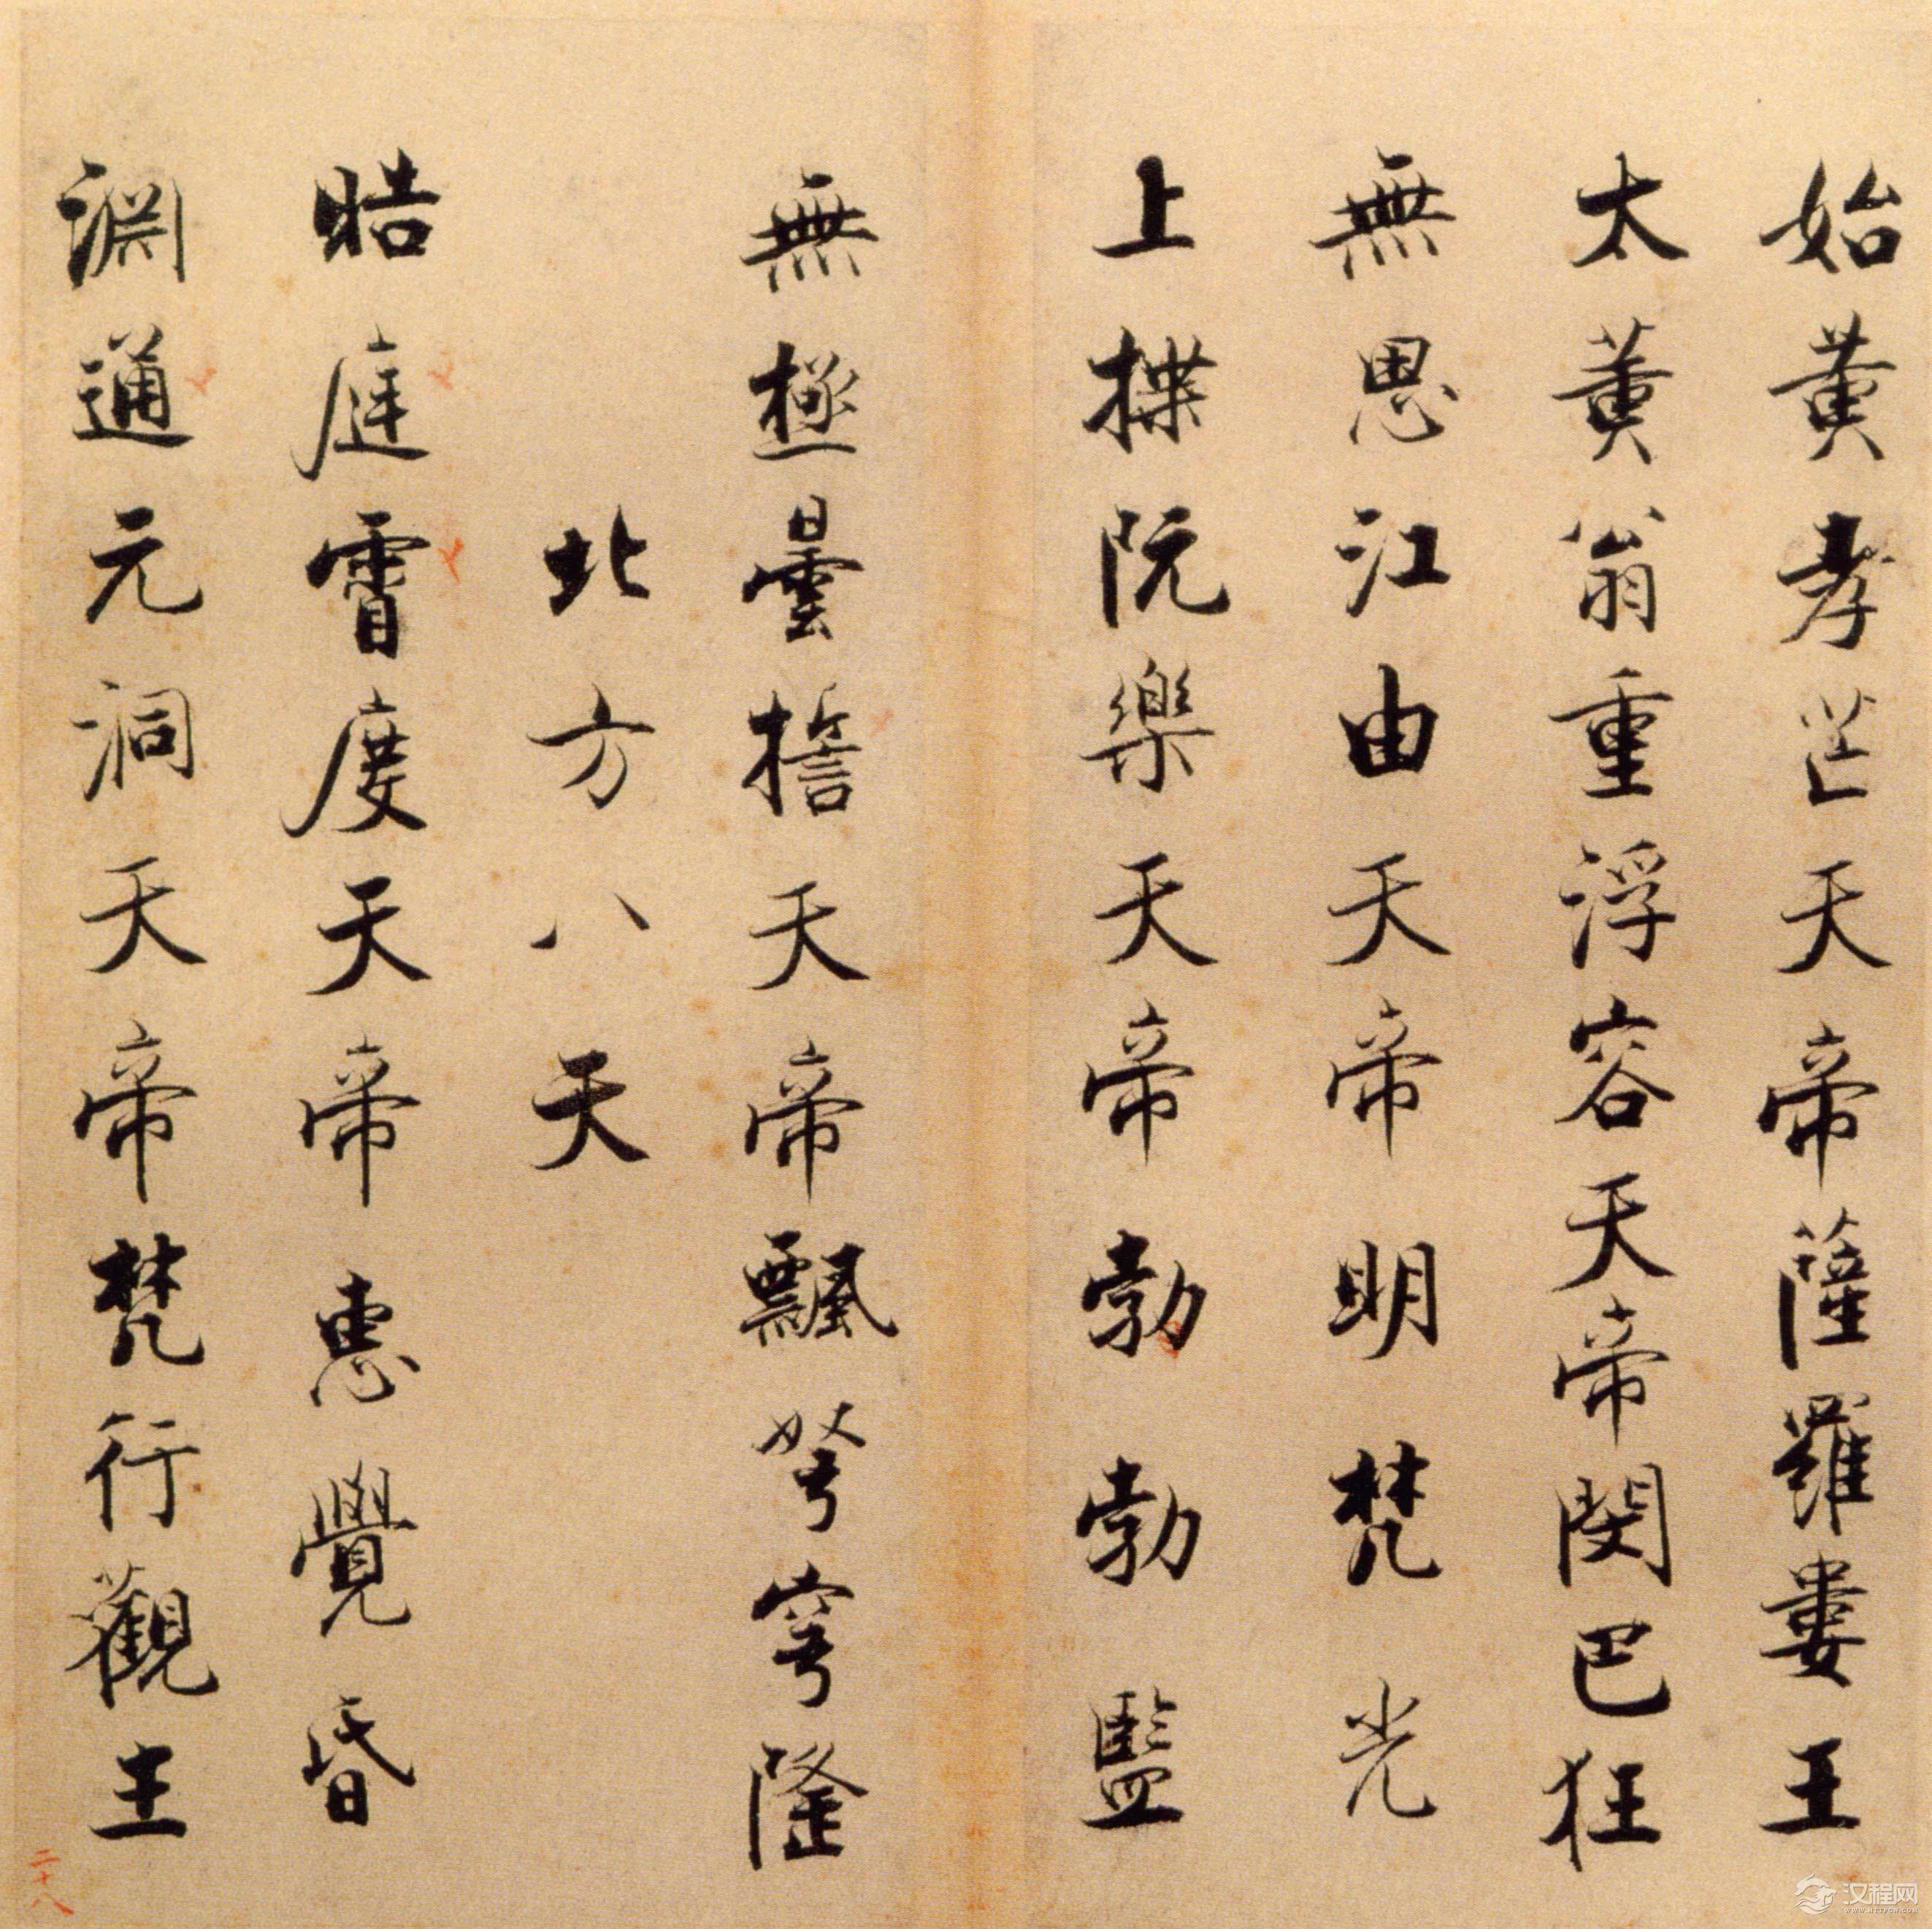 始黄孝芒天帝薩羅婁王
太黄翁重浮容天帝閔巴狂
無思江由天帝明梵光
上揲阮樂天帝勃勃監
無極曇誓天帝飄弩穹隆
北方八天
晧庭霄度天帝惠覺昏
淵通元洞天帝梵行觀生
二十八
汉程网